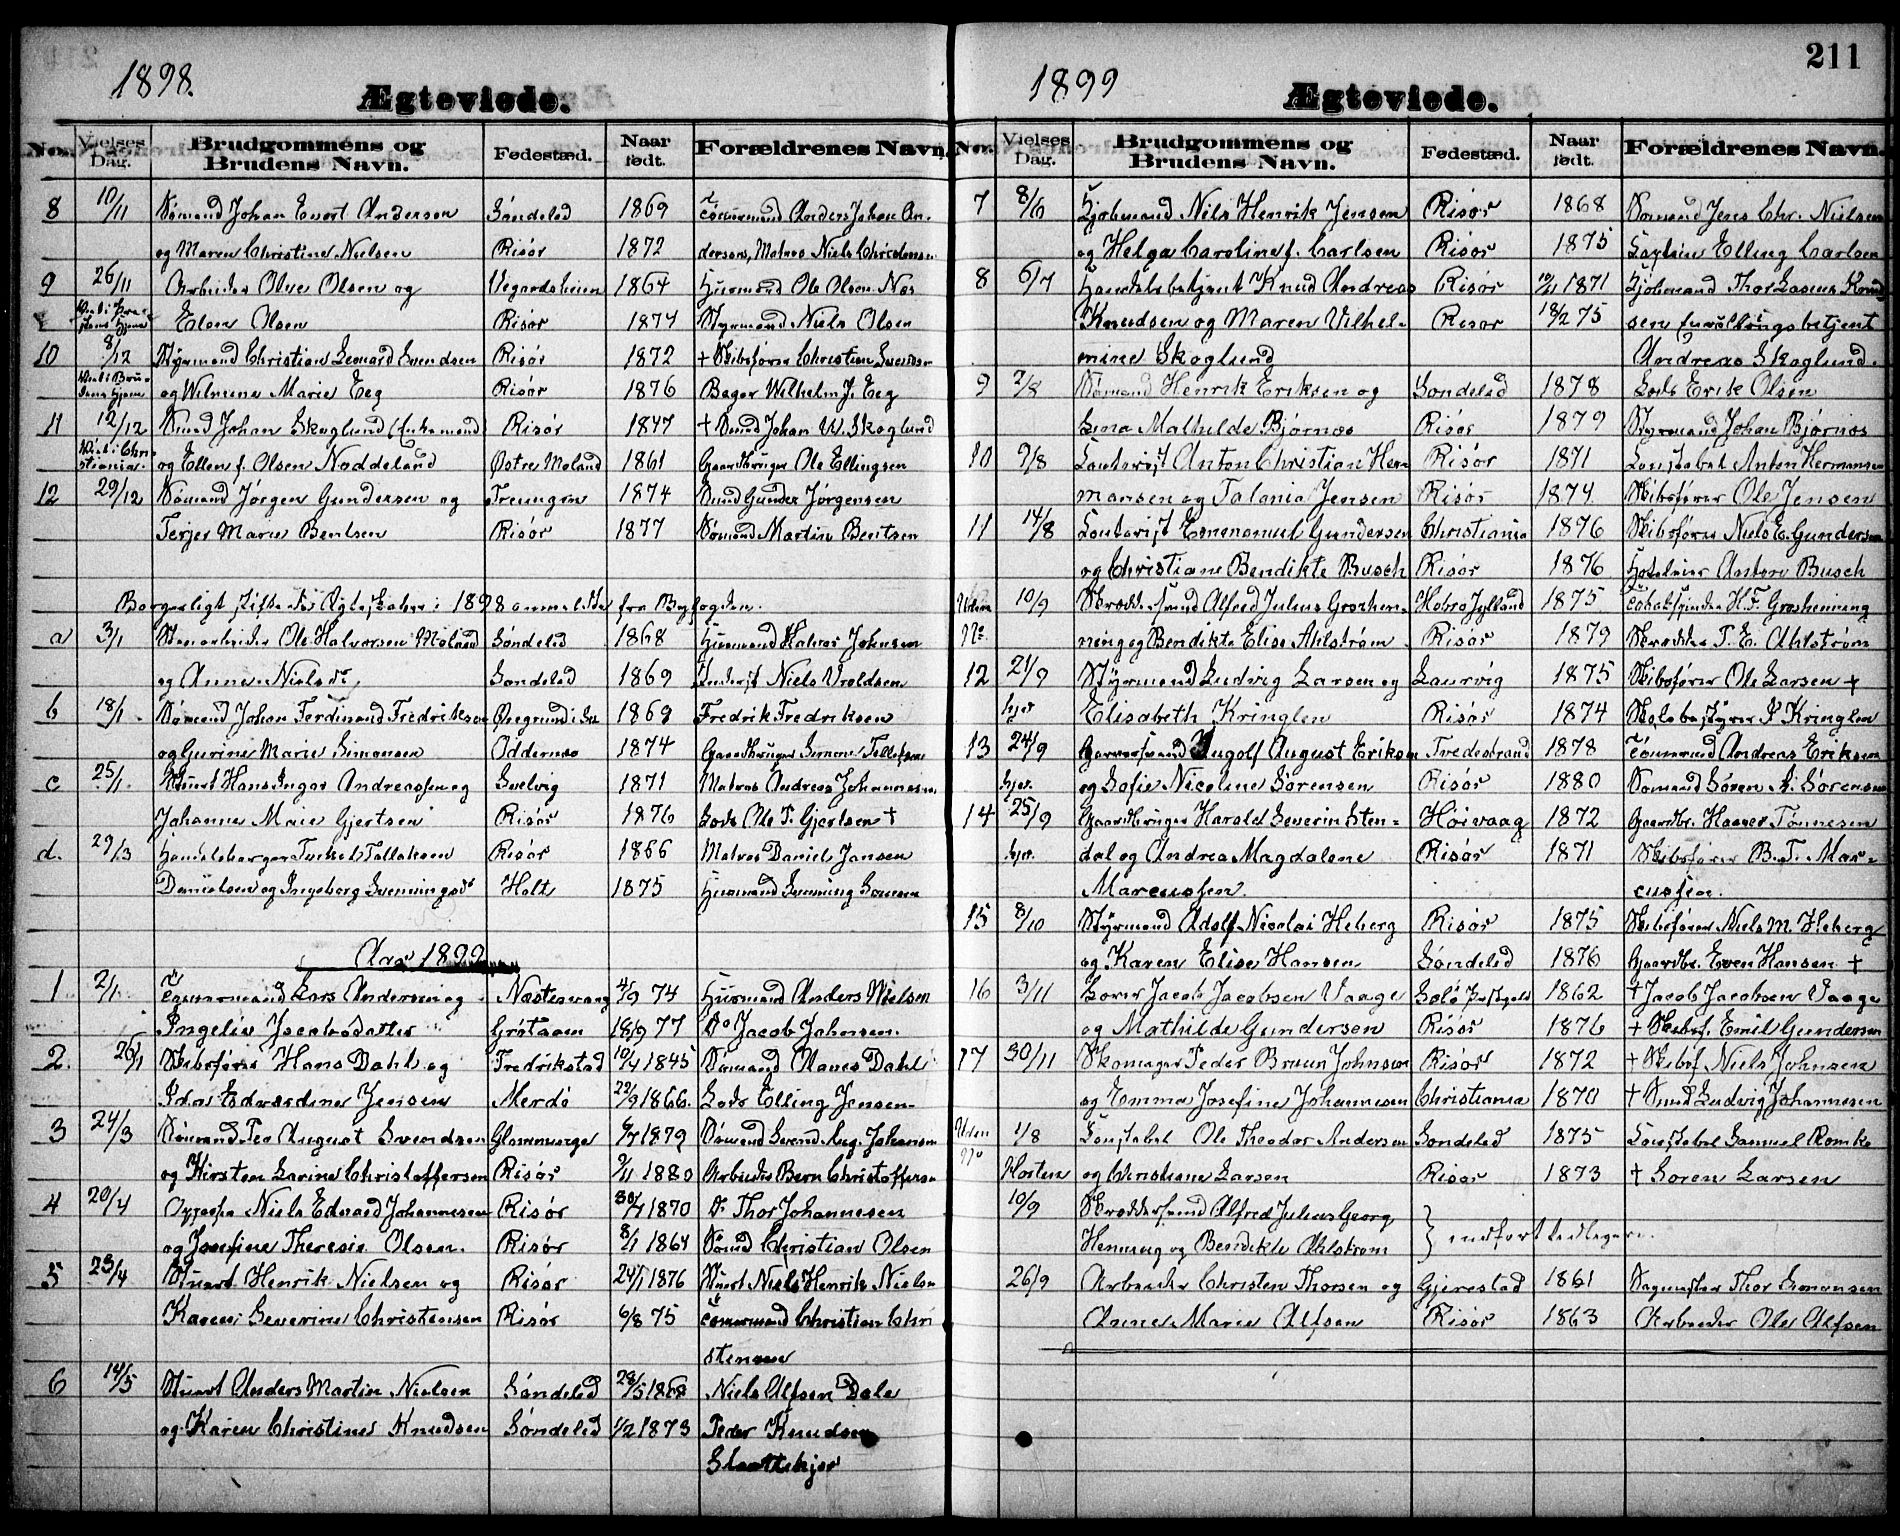 1898.
Ægteviede.
No. Vielses Dag. Brudgommens og Brudens Navn. Fødested. Naar født. Forældrenes Navn.
8 10/11 Sømand Johan Evert Andersen Søndeled 1869 Tømmermand Anders Johan An-
og Maren Christine Nielsen Risør 1872 dersens, Matros Niels
9 26/11 Arbeider Olve Olsen og Vegardsheien 1864 Husmand Ole Olsen Næs
Elen Olsen Risør 1874 Styrmand Niels Olsen
10 8/12 Styrmand Christian Leonard Svendsen Risør 1872 + Skibsfører Christian Svendsen
og Wilmine Marie Eeg Risør 1876 Bager Wilhelm J. Eeg
11 12/12 Smed Johan Skoglund (Enkemand) Risør 1847 + Smed Johan W. Skoglund
Viet i Chri-
stiania. og Ellen f. Olsen Noddeland Østre Moland 1861 Gaardbruger Ole Ellingsen
12 29/12 Sømand Jørgen Gundersen og Treungen 1874 Smed Gunder Jørgensen
Terjer Marie Bentsen Risør 1877 Sømand Martin Bentsen
Borgerligt stiftede Ægteskaber i 1898 anmeldte fra Byfogden.
a 3/1 Stenarbeider Ole Halvorsen Moland Søndeled 1868 Husmand Halvor Johnsen
og Anne Nielsdr Søndeled 1869 Inderst Niels Vroldsen
b 18/1 Sømand Johan Ferdinand Fredriksen Øregrund i Sv. 1869 Fredrik Fredriksen
og Gurine Marie Simonsen Oddernes 1874 Gaardbruger Simon Tellefsen
c 25/1 Stuert Hans Inger Andreassen og Svelvig 1871 Matros Andreas Johannesen
Johanne Marie Gjertsen Risør 1876 Lods Ole T. Gjertsen +
d. 29/3 Handelsborger Terkel Tallaksen Risør 1866 Matros Daniel Jansen
Danielsen og Ingeborg Svenningsdr Holt 1875 Husmand Svenning
Aar 1899
1 2/1 Tømmermand Lars Andersen og Næstesvang 4/9 74 Husmand Anders Nielsen
Ingeliv Jacobsdatter Grøtaaen 18/9 77 Do Jacob Johnsen.
2. 26/1 Skibsfører Hans Dahl og Fredrikstad 10/4 1845 Sømand Claves Dahl
Ida Edvardine Jensen Merdø 22/9 1866. Lods Elling Jensen
3 24/3 Sømand Teo August Svendsen 1879 Sømand Svend Aug. Johansen
og Kirsten Larine Christoffersen Risør 9/11 1880 Arbeider Bern Christoffersen
4 20/4 Niels Edvard Johannesen Risør 30/1 1870 Thor Johannesen
og Josefine Theresie Olsen. Risør 8/1 1864 Smed Christian Olsen
5 23/4 Stuert Henrik Nielsen og Risør 24/1 1876 Stuert Niels Henrik Nielsen
Karen Severine Christensen Risør 6/8 75 Tømermand Christian Chri
stensen
6 14/5 Stuert Anders Martin Nielsen Søndeled 28/5 1868 Niels Alfsen Dale
og Karen Christine Knudsen Søndeled 1/2 1873 Peder Knudsen
Slaattekjær
1899
211
Ægteviede.
No. Vielses Dag. Brudgommens og Brudens Navn. Fødested. Naar født. Forældrenes Navn.
7 8/6 Kjøbmand Nils Henrik Jensen Risør 1868 Sømand Jens Chr. Nielsen
og Helga Caroline f. Carlsen Risør 1875 Captein Elling Carlsen
8 6/7 Handelsbetjent Knud Andreas Risør 1871 Kjøbmand Thor Lasius Knud
Knudsen og Maren Vilhel- Risør 18/2 75 sen
mine Skoglund Andreas Skoglund.
9 2/8 Sømand Henrik Eriksen og Søndeled 1878 Lods Erik Olsen
Lina Mathilde Bjørnes Risør 1879 Styrmand Johan Bjørnes
10 9/8 Kontorist Anton Christian Her- Risør 1871 Konstabel Anton Hermansen
mansen og Talania Jensen Risør 1874 Skibsfører Ole Jensen
11 14/8 Kontorist Emmanuel Gundersen Christiania 1876 Skibsfører Niels E. Gundersen
og Christiane Bendikte Busch Risør 1876 Hoteleier Anton Busch
Uden 10/9 Skræddersvend Alfred Julius Grozhen- Hobro Jylland 1875 H. F. Groshenning
No ning og Bendikte Elise Ahlstrøm Risør 1879 Skrædder T. E. Ahlstrøm
12 21/9 Styrmand Ludvig Larsen og Laurvig 1875 Skibsfører Ole Larsen +
Elisabeth Kringlen Risør 1874 Skolebestyrer P Kringlen
13 24/9 Garversvend Ingolf August Eriksen Tvedestrand 1878 Tømmermand Andreas Eriksen
og Sofie Nicoline Sørensen Risør 1880 Sømand Søren A. Sørensen
14 25/9 Gaardbruger Harald Severin Sten- Høivaag 1872 Gaardbr. Haaver Tønnesen
dal og Andrea Magdalene Risør 1871 Skibsfører B. T. Mar-
Marcussen. cussen.
15 8/10 Styrmand Adolf Nicolai Heberg Risør 1875 Skibsfører Niels M. Heberg
og Karen Elise Hansen Søndeled 1876 Gaardbr. Even Hansen +
16 3/11 Jacob Jacobsen Vaage 1862 + Jacob Jacobsen Vaage
og Mathilde Gundersen Risør 1876 + Skibsf. Emil Gundersen
17 30/11 Skomager Peder Bruun Johnsen Risør 1872 + Skibsf Niels Johnsen
og Emma Josefine Johannesen Christiania 1870 + Smed Ludvig Johannesen
Uden 1/8 Konstabel Ole Theodor Andersen Søndeled 1875 Konstabel Samuel
No
Horten og Christiane Larsen Risør 1873 + Soren Larsen
10/9 Skræddersvend Alfred Julius Georg
Henning og Bendikte Ahlstrøm } indført tidligere.
26/9 Arbeider Christen Thorsen og Gjerestad 1861 Sagmester Thor Simonsen
Anne Marie Alfsen Risør 1863 Arbeider Ole Alfsen